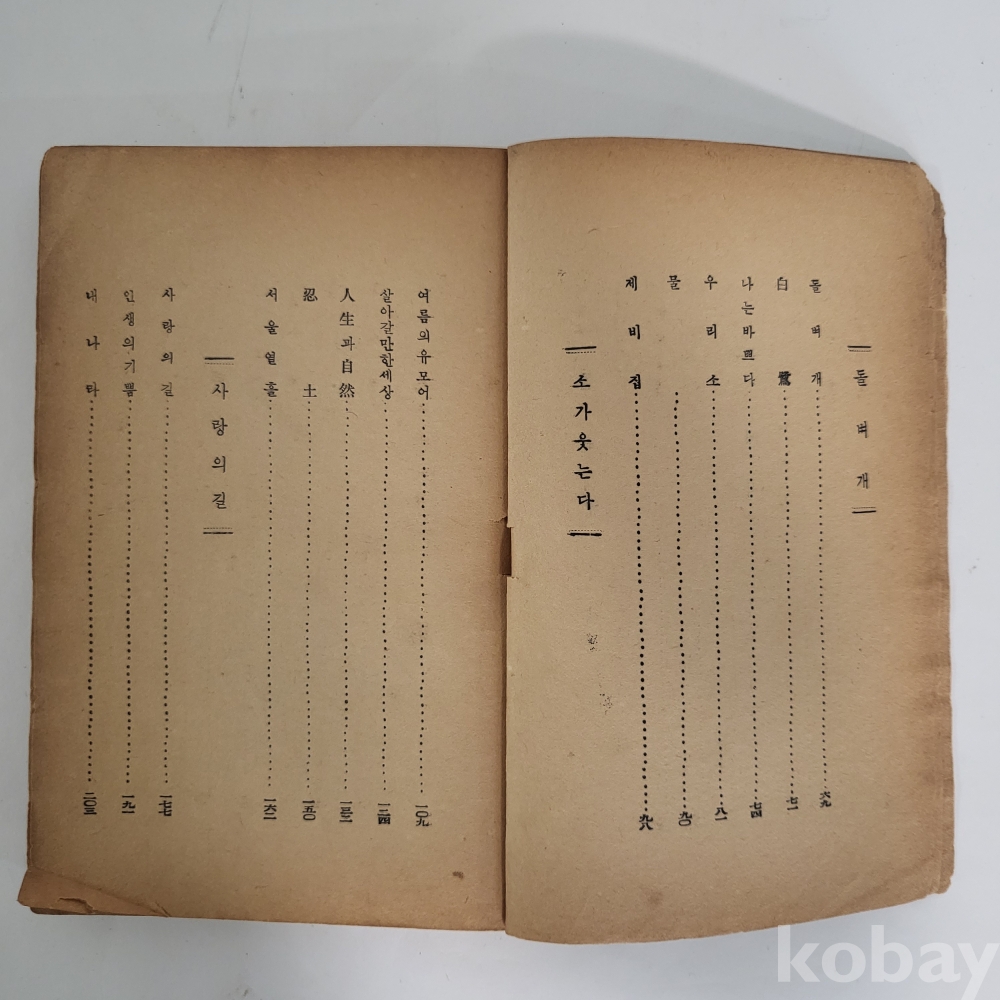 돌벼개
돌벼개 六九
白鷺 七一
나는바쁘다 七四
우리소 八一
물 九〇
제비집 九八
소가웃는다
여름의유모어 一〇九
살아갈만한세상 一二四
人生과自然 一三二
忍土 一五〇
서울열흘 一六二
사랑의길
사랑의길 一七七
인생의기쁨 一九一
내나라 二〇三
kobay